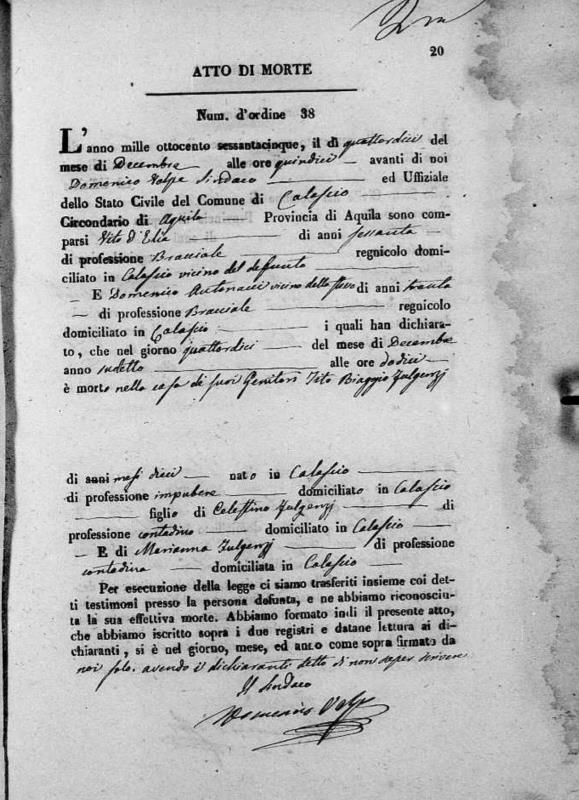 20
ATTO DI MORTE
Num. d'ordine 38
L'anno mille ottocento sessantacinque, il dì quattordici del
mese di Decembre alle ore quindici avanti di noi
Domenico Volpe Sindaco ed Uffiziale
dello Stato Civile del Comune di Calascio
Circondario di Aquila Provincia di Aquila sono com-
parsi Vito d'Elia di anni sessanta
di professione Bracciale regnicolo domi-
ciliato in Calascio vicino del defunto
E Domenico Antonacci vicino dello stesso di anni trenta
di professione Bracciale regnicolo
domiciliato in Calascio i quali han dichiara-
to, che nel giorno quattordici del mese di Decembre
anno sudetto alle ore dodici
è morto nella casa di suoi Genitori Tito Biaggio Fulgenzj
di anni mesi dieci nato in Calascio
di professione impubere domiciliato in Calascio
figlio di Celestino Fulgenzj di
professione contadino domiciliato in Calascio
E di Marianna Fulgenzj di professione
contadina domiciliata in Calascio
Per esecuzione della legge ci siamo trasferiti insieme coi det-
ti testimoni presso la persona defunta, e ne abbiamo riconosciu-
ta la sua effettiva morte. Abbiamo formato indi il presente atto,
che abbiamo iscritto sopra i due registri e datane lettura ai di-
chiaranti, si è nel giorno, mese, ed anto come sopra firmato da
noi solo. avendo i dichiaranti detto di non saper scrivere
Il Sindaco
Domenico Volpe